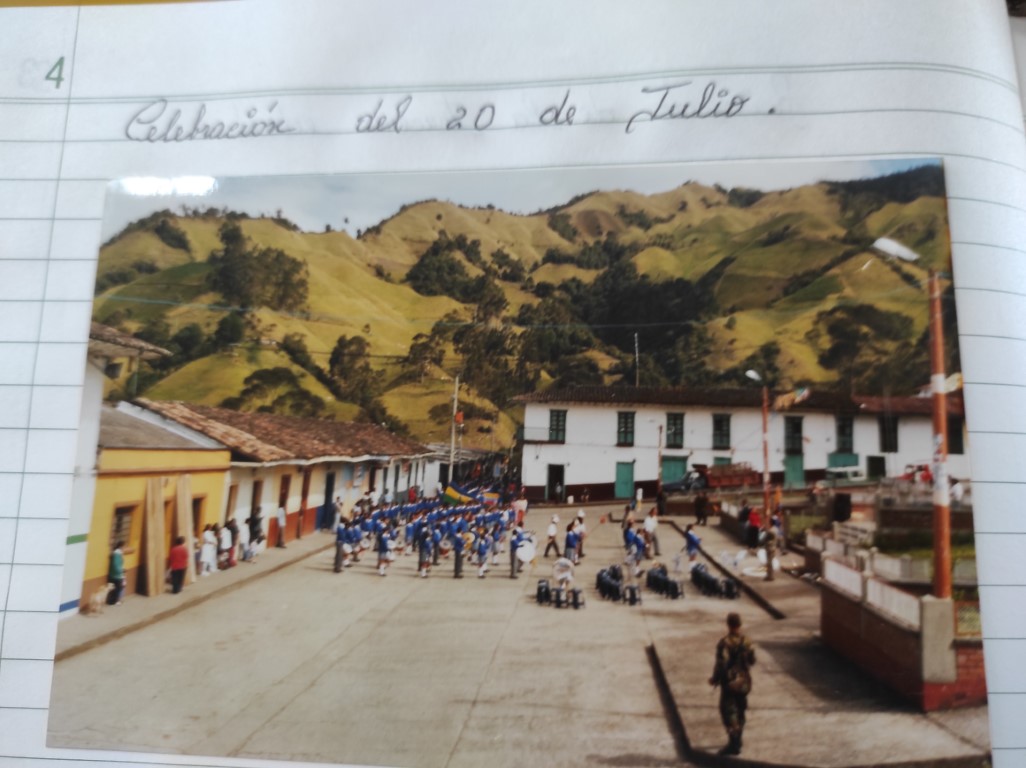 4
Celebración del 20 de Julio.